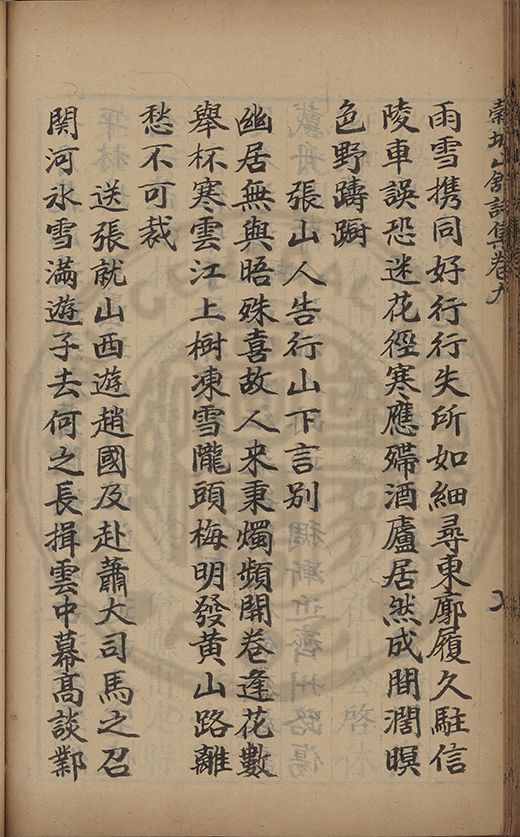 雨雪携同好行行失所如細尋東廓履久駐信
陵車誤恐迷花徑寒應殢酒廬居然成間濶暝
色野躊躕
張山人告行山下言別
幽居無與晤殊喜故人来秉燭頻開卷逢花數
舉杯寒雲江上樹凍雪隴頭梅明發黄山路離
愁不可裁
送張就山西遊趙國及赴蕭大司馬之召
関河氷雪滿遊子去何之長揖雲中幕高談鄴